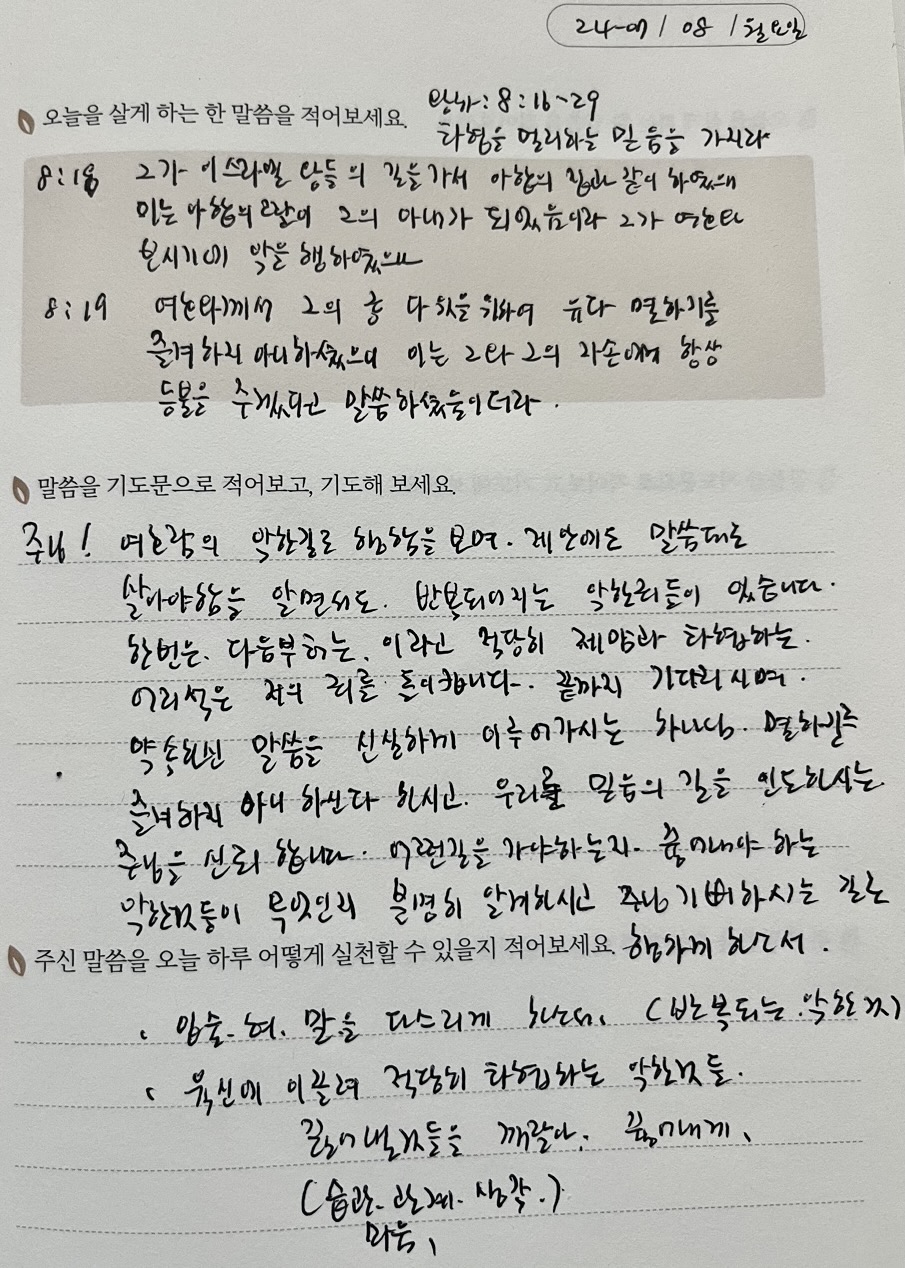 24-07 / 08 / 월요일
오늘을 살게 하는 한 말씀을 적어보세요.
왕하 : 8 : 16~29
타협을 멀리하는 믿음을 가지라
8 : 18 그가 이스라엘 왕들의 길을 가서 아합의 집과 같이 하였으니
이는 아합의 딸이 그의 아내가 되었음이라 그가 여호와
보시기에 악을 행하였으나
8 : 19 여호와께서 그의 종 다윗을 위하여 유다 멸하기를
즐겨하지 아니하셨으니 이는 그와 그의 자손에게 항상
등불을 주겠다고 말씀하셨음이더라.
말씀을 기도문으로 적어보고, 기도해 보세요.
주님! 여호람의 악한길로 행함을 보며. 제 안에도 말씀대로
살아야함을 알면서도. 반복되어지는 악한죄들이 있습니다.
한번은. 다음부터는. 이라고 적당히 제 악과 타협하는.
어리석은 저의 죄를 돌이킵니다. 끝까지 기다리시며.
약속하신 말씀을 신실하게 이루어가시는 하나님. 멸하길
즐겨하지 아니 하신다 하시고. 우리를 믿음의 길을 인도하시는
주님을 신뢰 합니다. 어떤길을 가야하는지. 끊어내야 하는
악한것들이 무엇인지 분명히 알게하시고 주님 기뻐하시는 길로
주신 말씀을 오늘 하루 어떻게 실천할 수 있을지 적어보세요.
행하게 하소서.
입술-혀. 말을 다스리게 하소서. (반복되는 악한것)
육신에 이끌려 적당히 타협하는 악한것들.
끊어낼것들을 깨달아. 끊어내게.
(습관. 관계. 생각.)
마음.